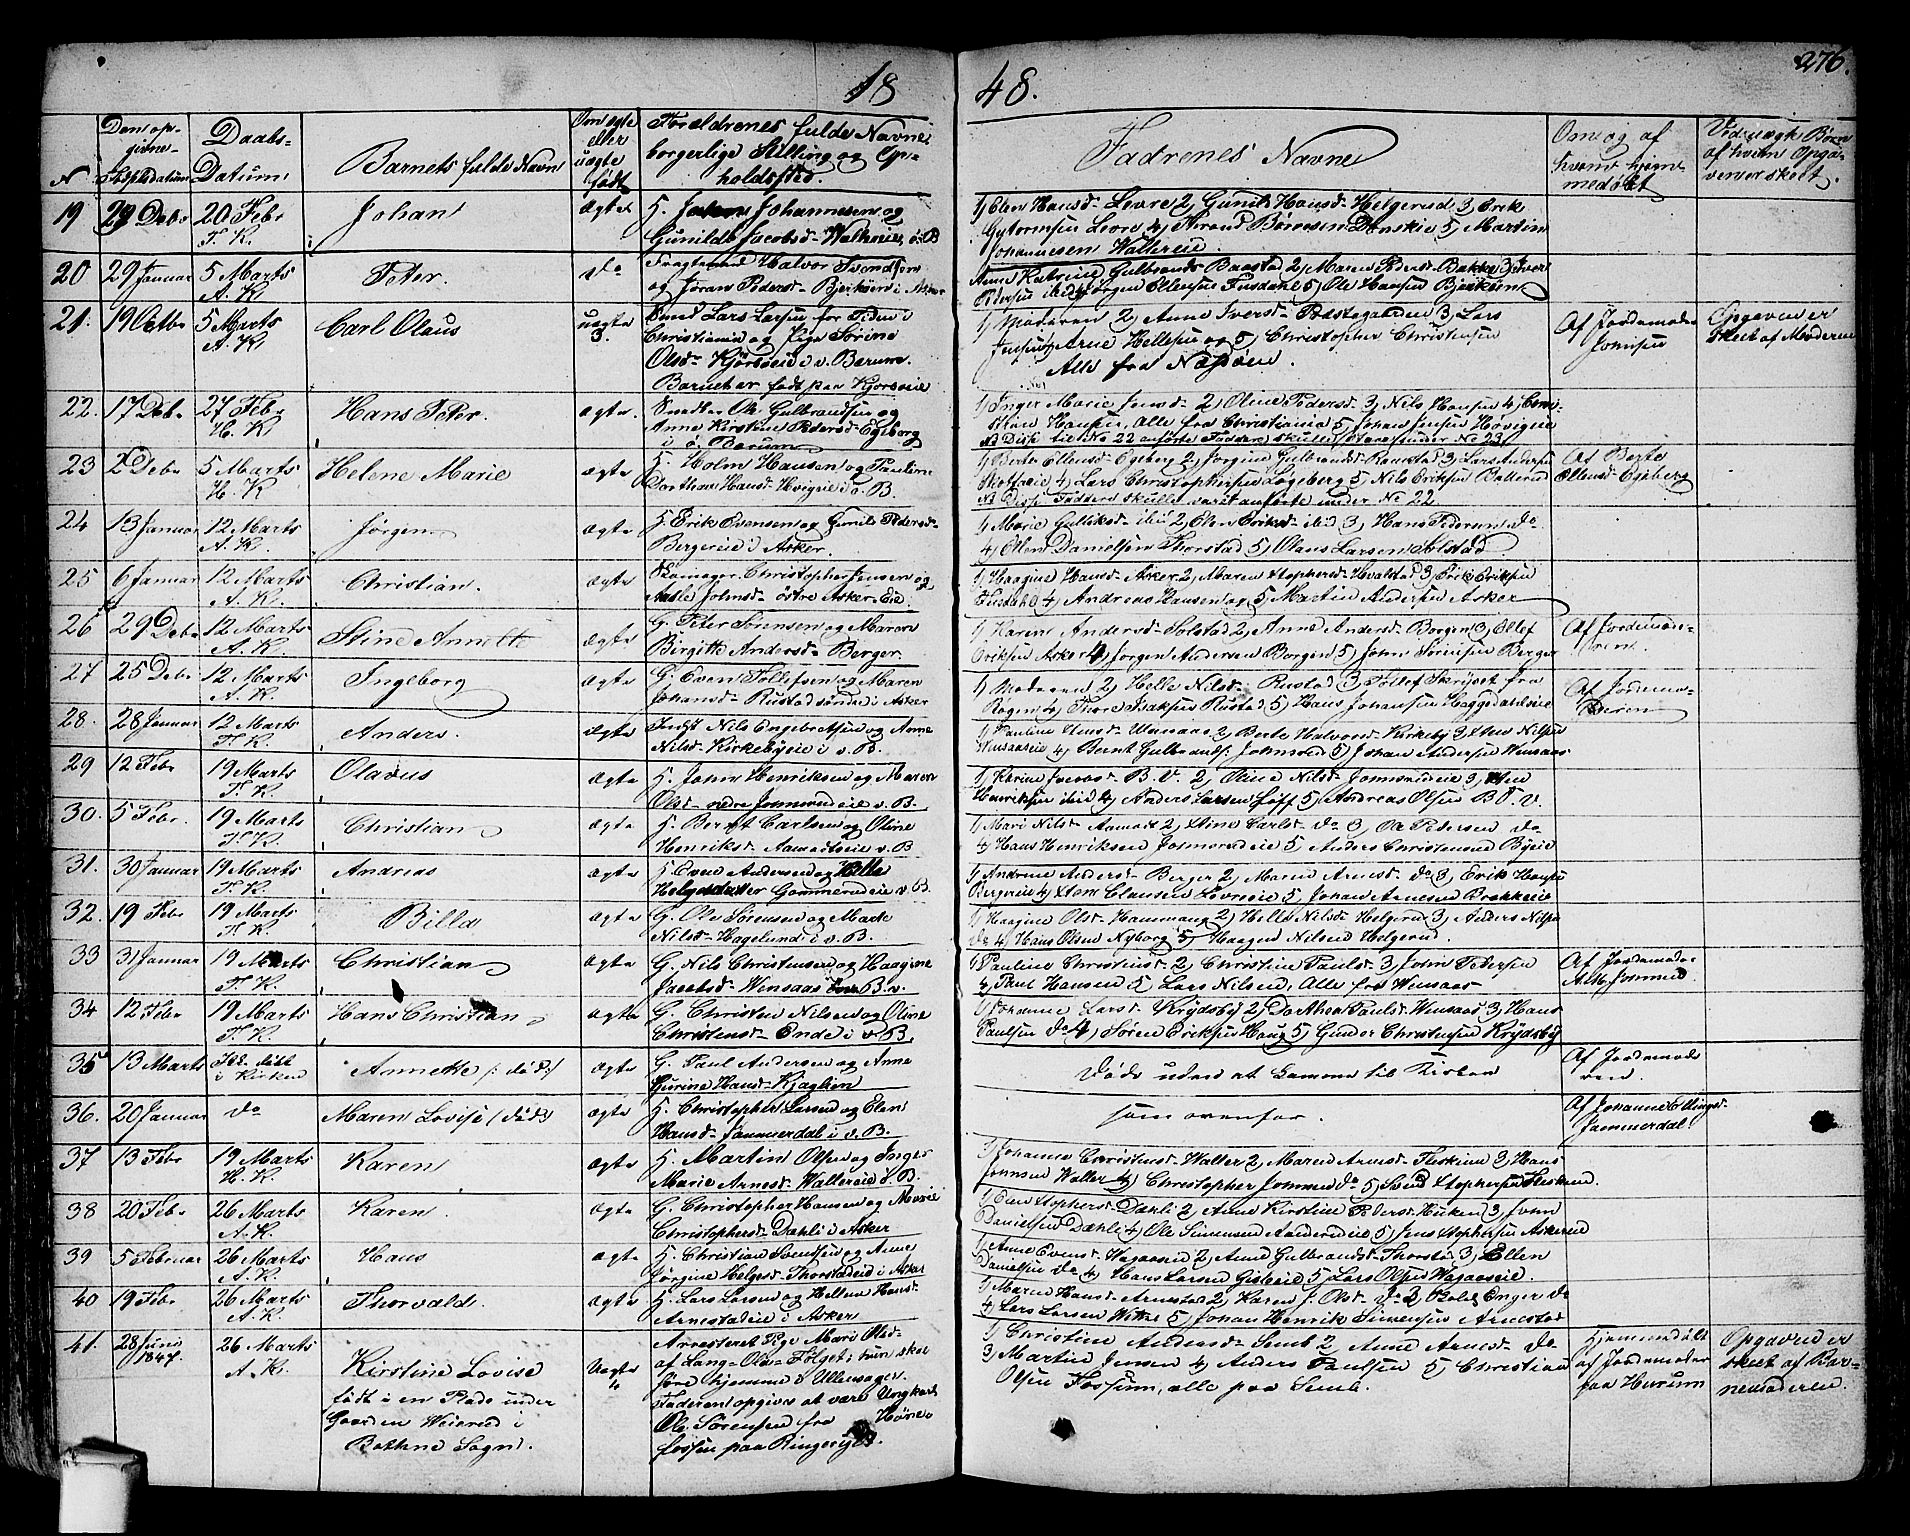 1848.
276.
N
Den opgivne Fødselsdatum
Daabs-Datum
Barnets fulde Navn
Om ægte eller uægte født
Forældrenes fulde Navne borgerlige Stilling og Opholdssted.
Faddrenes Navne
Om og af hvem hjemmedøbt
Ved uægte Børn af hvem Opgaven er skeet.
19 29 Debr 20 Febr T. K. Johan ægte
Johannesen og
Gunilde Jacobsd- Wallereie ø: B
1, Elen Hansd- Levre 2, Gunild Hansd- Helgerud 3, Erik
Gutormsen Levre 4, Amund Børresen Danskie 5, Martin
Johannesen Wallereie.
20 29 Januar 5 Marts A. K. Peter. do
Fragtemand Halvor Svendsen
og Jøran Pedersd- Bjerkøen i Asker
Anne Katrine Gulbrands Baastad 2, Maren Pedersd- Bakke 3, Iver
Pedersen ibid 4, Jørgen Ellevsen Fusdahl 5, Ole Hansen Bjerkøen
21. 19 Octbr 5 Marts A. K Carl Olaus uægte 3.
Smed Lars Larsen for Tiden i
Christiania og Pige Sørine
Olsd- Kjørboeie i v. Berum.
Barnet er født paa Kjørboeie
1, Moderen 2, Anne Iversd- Præstegaarden 3, Lars
Jensen 4, Arne Hellesen og 5, Christopher Christensen
Alle fra Næsøen.
Af Jordemoder Johnsen
Opgaven er skeet af Moderen
22. 17 Debr 27 Febr H. K Hans Peter. ægte.
Smed Ole Gulbrandsen og
Anne Kirstine Pedersd- Egeberg
i ø. Berum
1, Inger Marie Jensd- 2, Oline Pedersd- 3, Nils Hansen 4, Chri-
stian Hansen, Alle fra Christiania 5, Johan Jensen Høvigeie
NB Disse til No 22 anførte Faddere skulle være under No 23
23 2 Debr 5 Marts H. K Helene Marie ægte
H. Holm Hansen og Pauline
Dorthea Hansd- Høvigeie i ø. B.
1, Berte Ellensd- Egeberg 2, Jørgine Gulbrandsd- Ramstad 3, Lars Andersen
4, Lars Christophersen Løgeberg 5, Nils Eriksen Ballerud
NB Disse Faddere skulle været anførte under No 22
Af Berte Ellensd- Egeberg
24 13 Januar 12 Marts A. K. Jørgen ægte
H. Erik Evensen og Gunild Pedersd-
Bergereie i Asker.
1, Marie Gulliksd- ibid 2, Elen Eriksd- ibid 3, Hans Pedersen do
4, Ellen Danielsen Thorstad 5, Olaus Larsen Solstad
25 6 Januar 12 Marts A. K. Christian ægte
Skomager Christopher Jensen og
Aasle Johnsd- østre Asker-Eie.
1, Haagine Hansd- Asker 2, Maren Stophersd- Hvalstad 3, Erik Eriksen
Fusdahl 4, Andreas Hansen og 5, Martin Andersen Asker
26 29 Debr 12 Marts A. K. Stine Annette ægte
G. Peter Sørensen og Maren
Birgitte Andersd- Berger.
1, Karen Andersd- Solstad 2, Anne Andersd- Borgen 3, Ellef
Eriksen Asker 4, Jørgen Andersen Borgen 5, John Sørensen Berger
Af Jordemoderen.
27 25 Debr 12 Marts A. K. Ingeborg ægte
G. Even Tollefsen og Maren
Johansd- Rustad søndre i Asker
1, Moderen 2, Helle Nilsd- Rustad 3, Tollef Skrædder fra
Rogen 4, Thore Isaksen Rustad 5, Hans Johansen Haggedahlseie
Af Jordemoderen
28. 28 Januar 12 Marts T. K. Anders. ægte
Inds. Nils Engebretsen og Anne
Nilsd- Kirkebyeie i v. B.
1, Pauline 2, Berte Halvorsd- Kirkeby 3, Nilsen
4, Bernt Gulbrands: Johnsrud 5, Johan Andersen Winsaas
29 12 Febr 19 Marts T. K. Olavus ægte
H. John Henriksen og Maren
Olsd- nedre Johnsrudeie v. B.
1, Karine Iversd- B. V. 2, Oline Nilsd- Johnsrudeie 3, Sten
Henriksen ibid 4, Anders Larsen Løff 5, Andreas Olsen B. v.
30. 5 Febr. 19 Marts T. K. Christian ægte
H. Bernt Carlsen og Oline
Henriksd- Aamodteie v. B
1, Mari Nilsd- Aamodt 2, Stine Carlsd- do 3, Ole Pedersen do
4, Hans Henriksen Johnsrudeie 5, Anders Christensen Byeie
31. 30 Januar 19 Marts T. K. Andreas ægte
H. Even Andersen og Helle
Helgesdatter Gommerudeie v. B.
1, Andrine Andersd- Berger 2, Maren Arnesd- do 3, Erik Hansen
Bergereie 4, Sten Clausen Lovreeie 5, Johan Arnesen Brækkeeie
32. 19 Febr 19 Marts H. K. Bille ægte
G. Ole Sørensen og Marte
Nilsd- Hagelund i v. B.
1, Haagine Olsd- Hammang 2, Helle Nilsd- Helgerud 3, Anders Nilsen
do 4, Hans Olsen Nyborg 5, Haagen Nilsen Helgerud.
33 31 Januar 19 Marts T. K. Christian ægte
G. Nils Christensen og Haagine
Jacobsd- Winsaas B. v.
1, Pauline Christensd- 2, Christine Paulsd- 3, John Pedersen
4, Paul Hansen 5, Lars Nilsen, Alle fra Winsaas
Af Jordemoder A. M. Johnsrud
34 12 Febr 19 Marts T. K. Hans Christian ægte
G. Christen Nilsen og Oline
Christensd- Ende i v. B.
1, Johanne Larsd- Krydsby 2, Dorthea Paulsd- Winsaas 3, Hans
Paulsen do 4, Søren Eriksen Haug 5, Gunder Christensen Krydsby
35 13 Marts Ikke døbt i Kirken Annette (: død :) ægte
G. Paul Andersen og Anne
Gurine Hansd- Kjaglien
Døde uden at komme til Kirken
Af Jordemoderen.
36. 20 Januar do Maren Lovise (død) ægte
H. Christopher Larsen og Elen
Hansd- Jammerdal i v. B.
som ovenfor.
Af Johanne Ellingsd- Jammerdal
37 13 Febr 19 Marts H. K. Karen ægte
H. Martin Olsen og Inger
Marie Arnesd- Wallereie ø. B.
1, Johanne Christensd- Waller 2, Maren Arnesd- Fleskum 3, Hans
Johnsen Waller 4, Christopher Johnsen do 5, Svend Stophersen Fleskum.
38 20 Febr 26 Marts A. K. Karen. ægte
G. Christopher Hansen og Marie
Christophersd- Dahli i Asker
1, Elen Stophersd- Dahli 2, Anne Kirstine Pedersd- Hukken 3, John
Danielsen Dahli 4, Ole Simensen Aaruderdeie 5, Jens Stophersen Askereie
39 5 Februar 26 Marts A. K. Hans ægte
H. Christian Svendsen og Anne
Jørgine Helgesd- Thorstadeie i Asker
1, Anne Evensd- Wøgaaseie 2, Anne Gulbrandsd- Thorstad 3, Ellen
Danielsen do 4, Hans Larsen Gisleeie 5, Lars Olsen Wøgaaseie.
40 19 Febr 26 Marts A. K. Thorvald. ægte
H. Lars Larsen og Hellene Hansd-
Arnestadeie i Asker
1, Maren Hansd- Arnestad 2, Karen J. Olsd- do 3, Enger do
4, Lars Larsen 5, Johan Henrik Simensen Arnestad
41. 28 Juni 1847. 26 Marts A. K. Kirstine Lovise
født i en Plads under
Gaarden Weierud i
Botterne Sogn.
Uægte 4
Arresteret Pige Mari Olsd-
af Lang-Ola-Følget; hun skal
høre hjemme i Ullensager.
Faderen opgives at være Ungkarl
Ole Sørensen fra Høne-
fossen paa Ringerige.
1, Christine Andersd- Semb 2 Anne Arnesd- do
3, Martin Jensen 4, Anders Paulsen 5, Christian
Olsen Fossum, alle paa Semb.
Hjemmedøbt af Jordemoder paa Hurum
Opgaven er skeet af Barnemoderen.